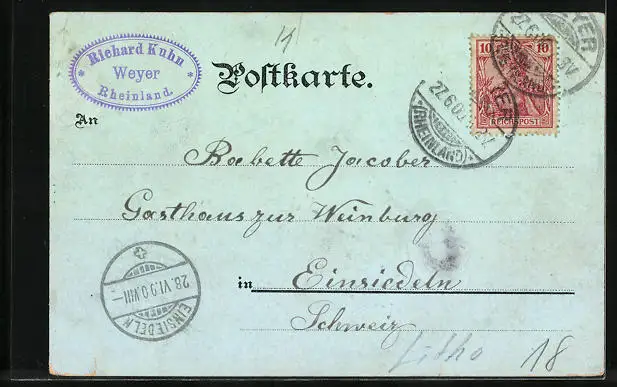 Richard Kuhn
Weyer
Rheinland.
Postkarte.
10 10
REICHSPOST
WEYER
(RHEINLAND)
27.6.00
An
Babette Jacober
Gasthaus zur Weinburg
in Einsiedeln
Schweiz
28.VI.00.VIII-
EINSIEDELN
Litho
18